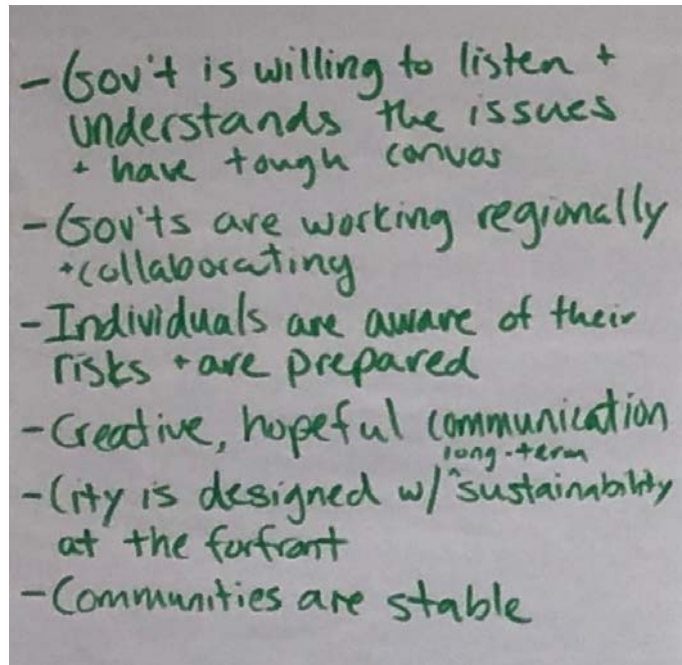 - Gov't is willing to listen +
understands the issues
+ have tough convos
- Gov'ts are working regionally
+ collaborating
- Individuals are aware of their
risks + are prepared
- Creative, hopeful communication
long-term
- City is designed w/ ^ sustainability
at the forfront
- Communities are stable